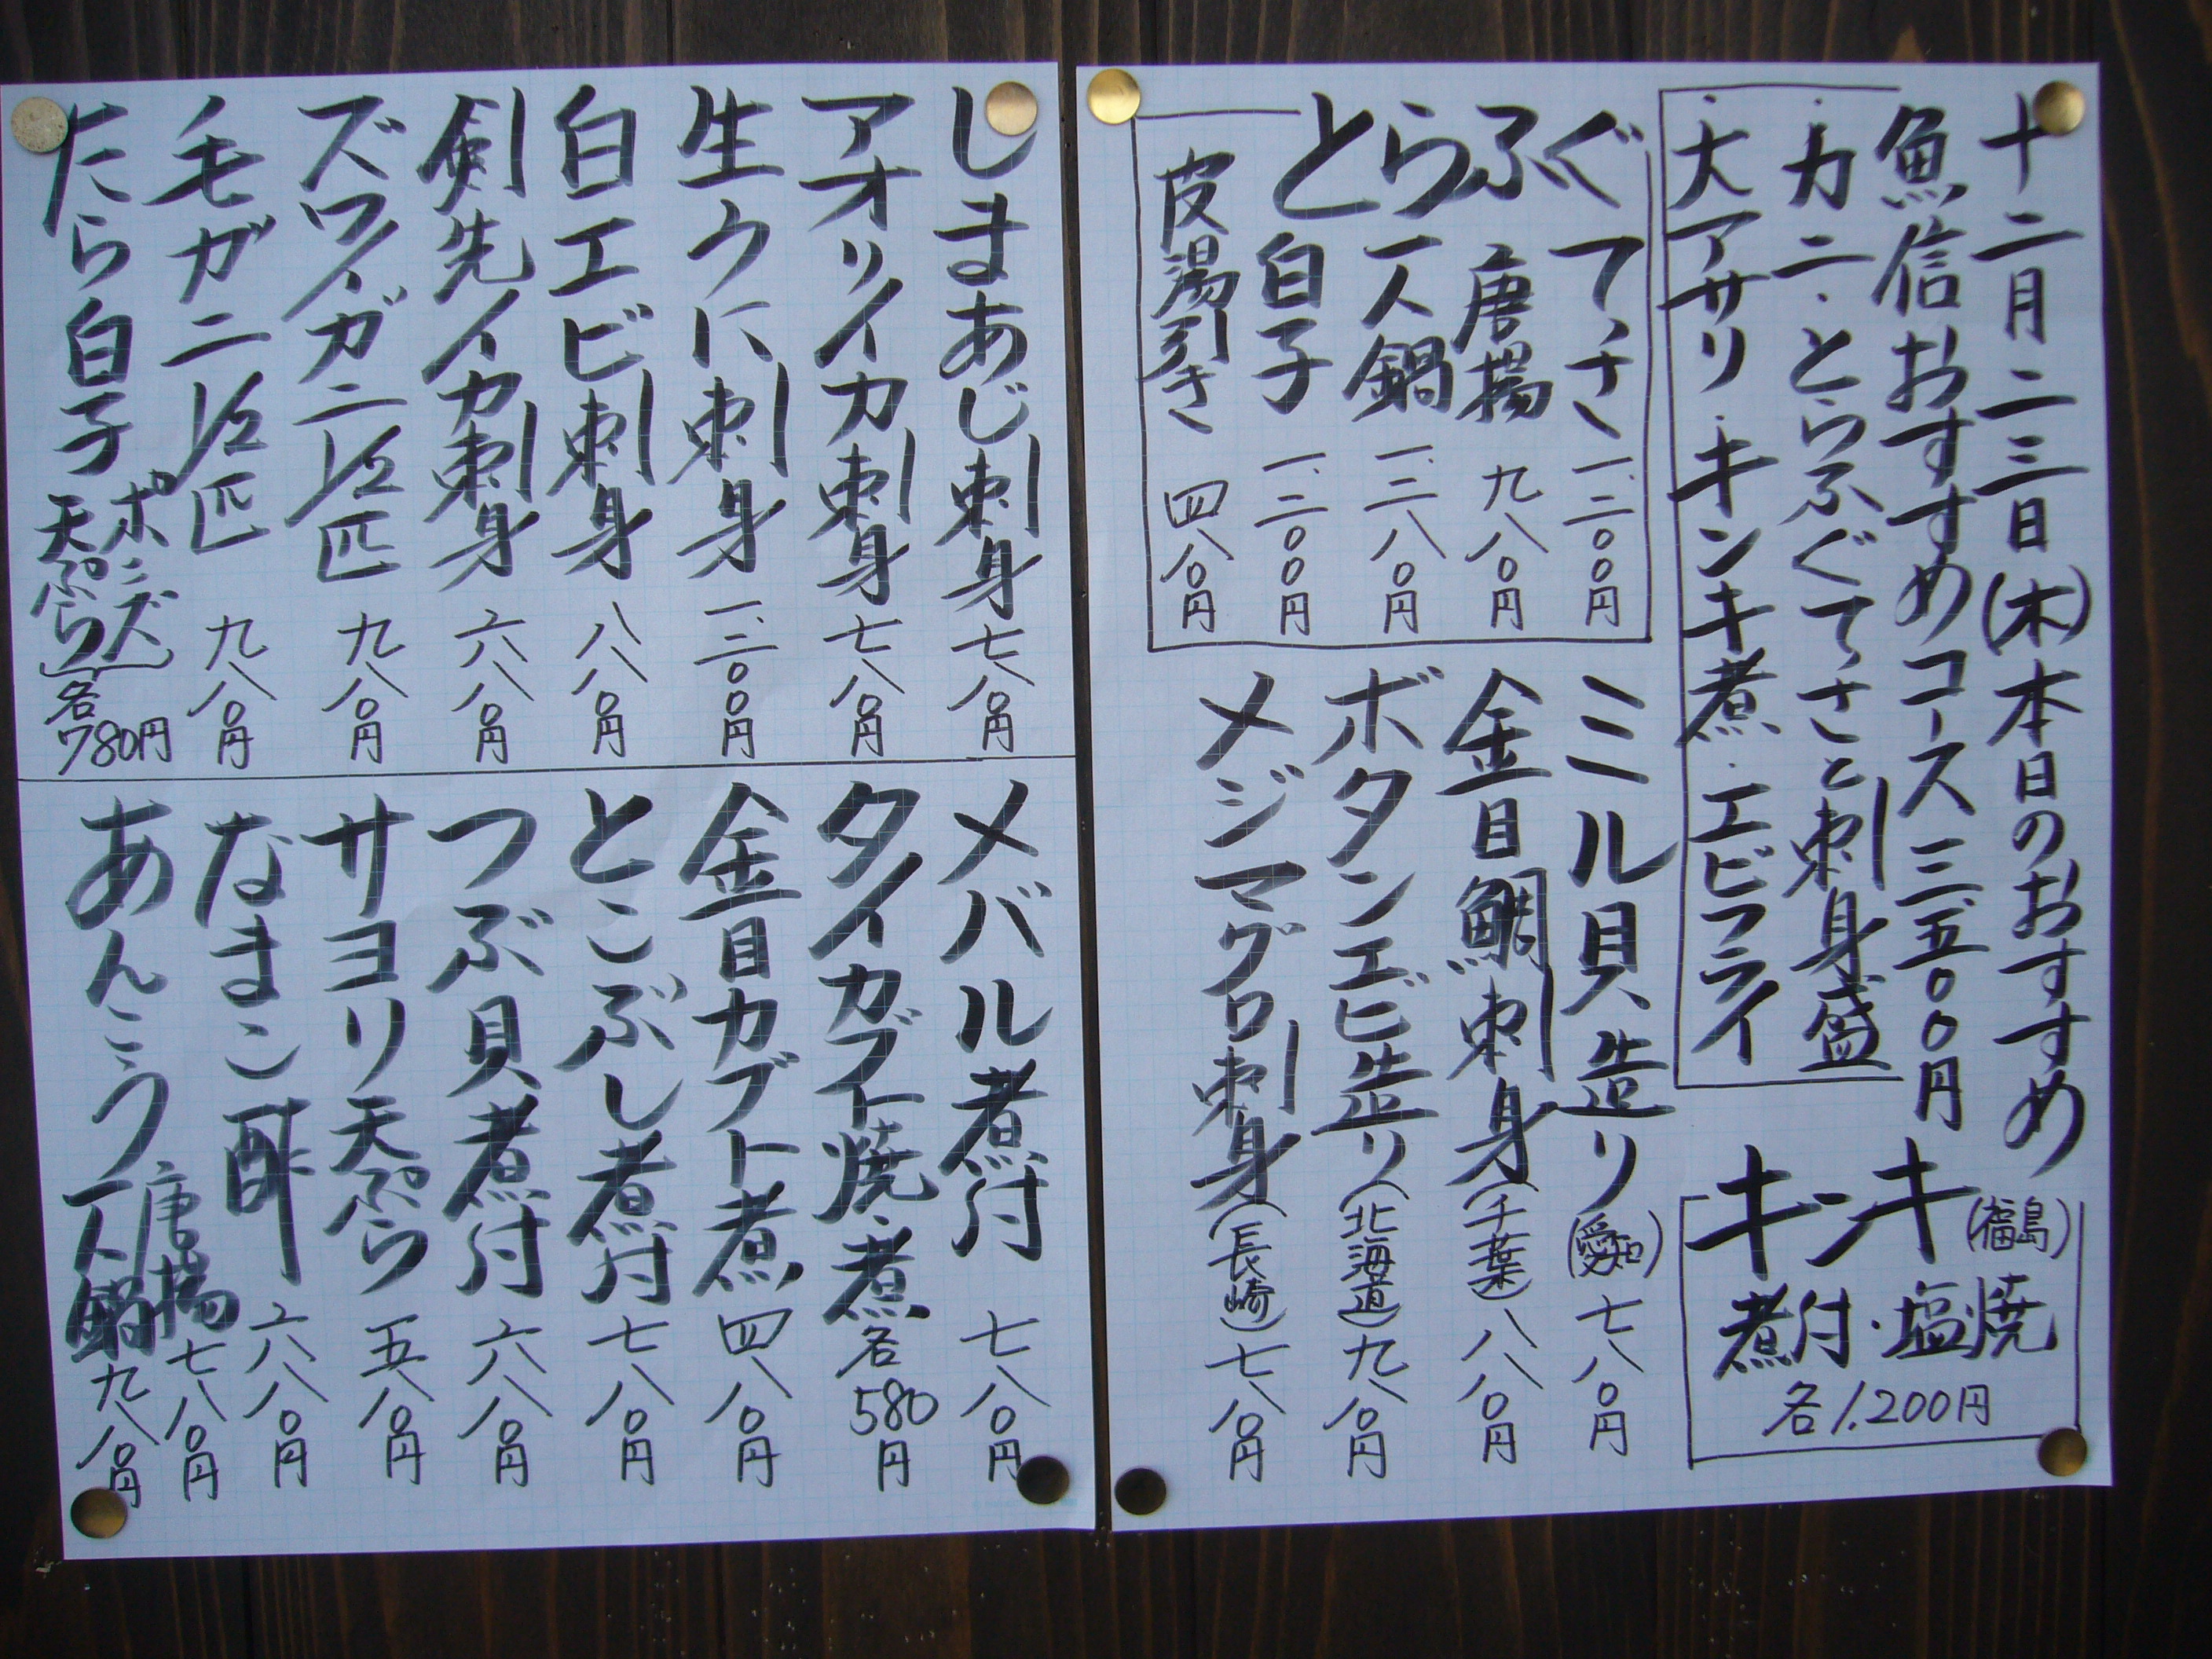 十二月二三日(木)本日のおすすめ
魚信おすすめコース三.五〇〇円
・カニ・とらふぐてっさと刺身盛
・大アサリ・キンキ煮・エビフライ
キンキ(福島)
煮付・塩焼
各1.200円
とらふぐ
てっさ 一.二〇〇円
唐揚 九八〇円
一人鍋 一.二八〇円
白子 一.二〇〇円
皮湯引き 四八〇円
ミル貝造り(愛知)七八〇円
金目鯛刺身(千葉)八八〇円
ボタンエビ造り(北海道)九八〇円
メジマグロ刺身(長崎)七八〇円
しまあじ刺身 七八〇円
アオリイカ刺身 七八〇円
生ウニ刺身 一.二〇〇円
白エビ刺身 八八〇円
剣先イカ刺身 六八〇円
ズワイガニ1/2匹 九八〇円
毛ガニ1/2匹 九八〇円
たら白子 ポン酢 天ぷら 各780円
メバル煮付 七八〇円
タイカブト焼・煮 各580円
金目カブト煮 四八〇円
とこぶし煮付 七八〇円
つぶ貝煮付 六八〇円
サヨリ天ぷら 五八〇円
なまこ酢 六八〇円
あんこう 唐揚 七八〇円
一人鍋 九八〇円